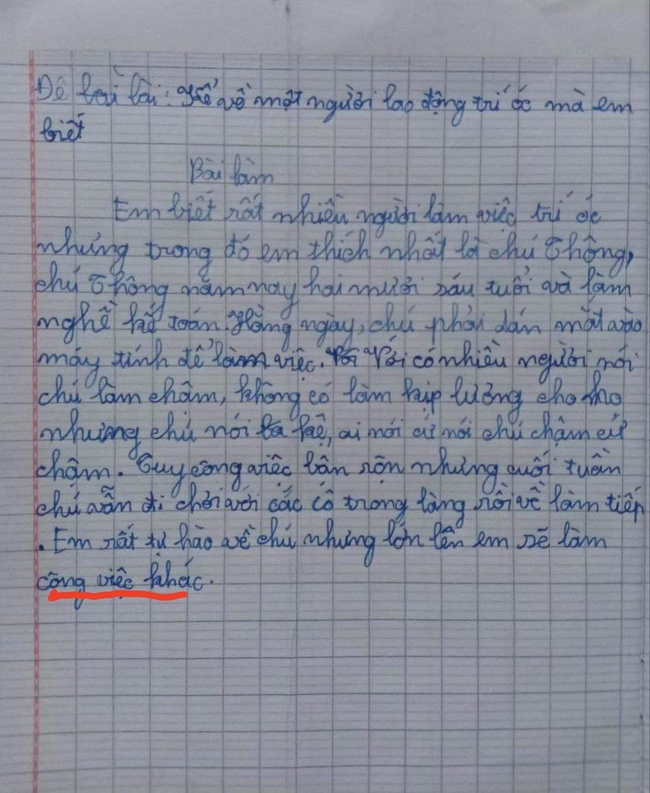 Đề bài bài: Kể về một người lao động trí óc mà em
biết
Bài làm
Em biết rất nhiều người làm việc trí óc
nhưng trong đó em thích nhất là chú Thông,
chú Thông năm nay hai mươi sáu tuổi và làm
nghề kế toán. Hằng ngày, chú phải dán mắt vào
máy tính để làm việc. Với có nhiều người nói
chú làm chậm, không có làm kịp lương cho họ
nhưng chú nói kệ, ai nói cứ nói chú chậm cứ
chậm. Tuy công việc bận rộn nhưng cuối tuần
chú vẫn đi chơi với các cô trong làng rồi về làm tiếp
. Em rất tự hào về chú nhưng lớn lên em sẽ làm
công việc khác.